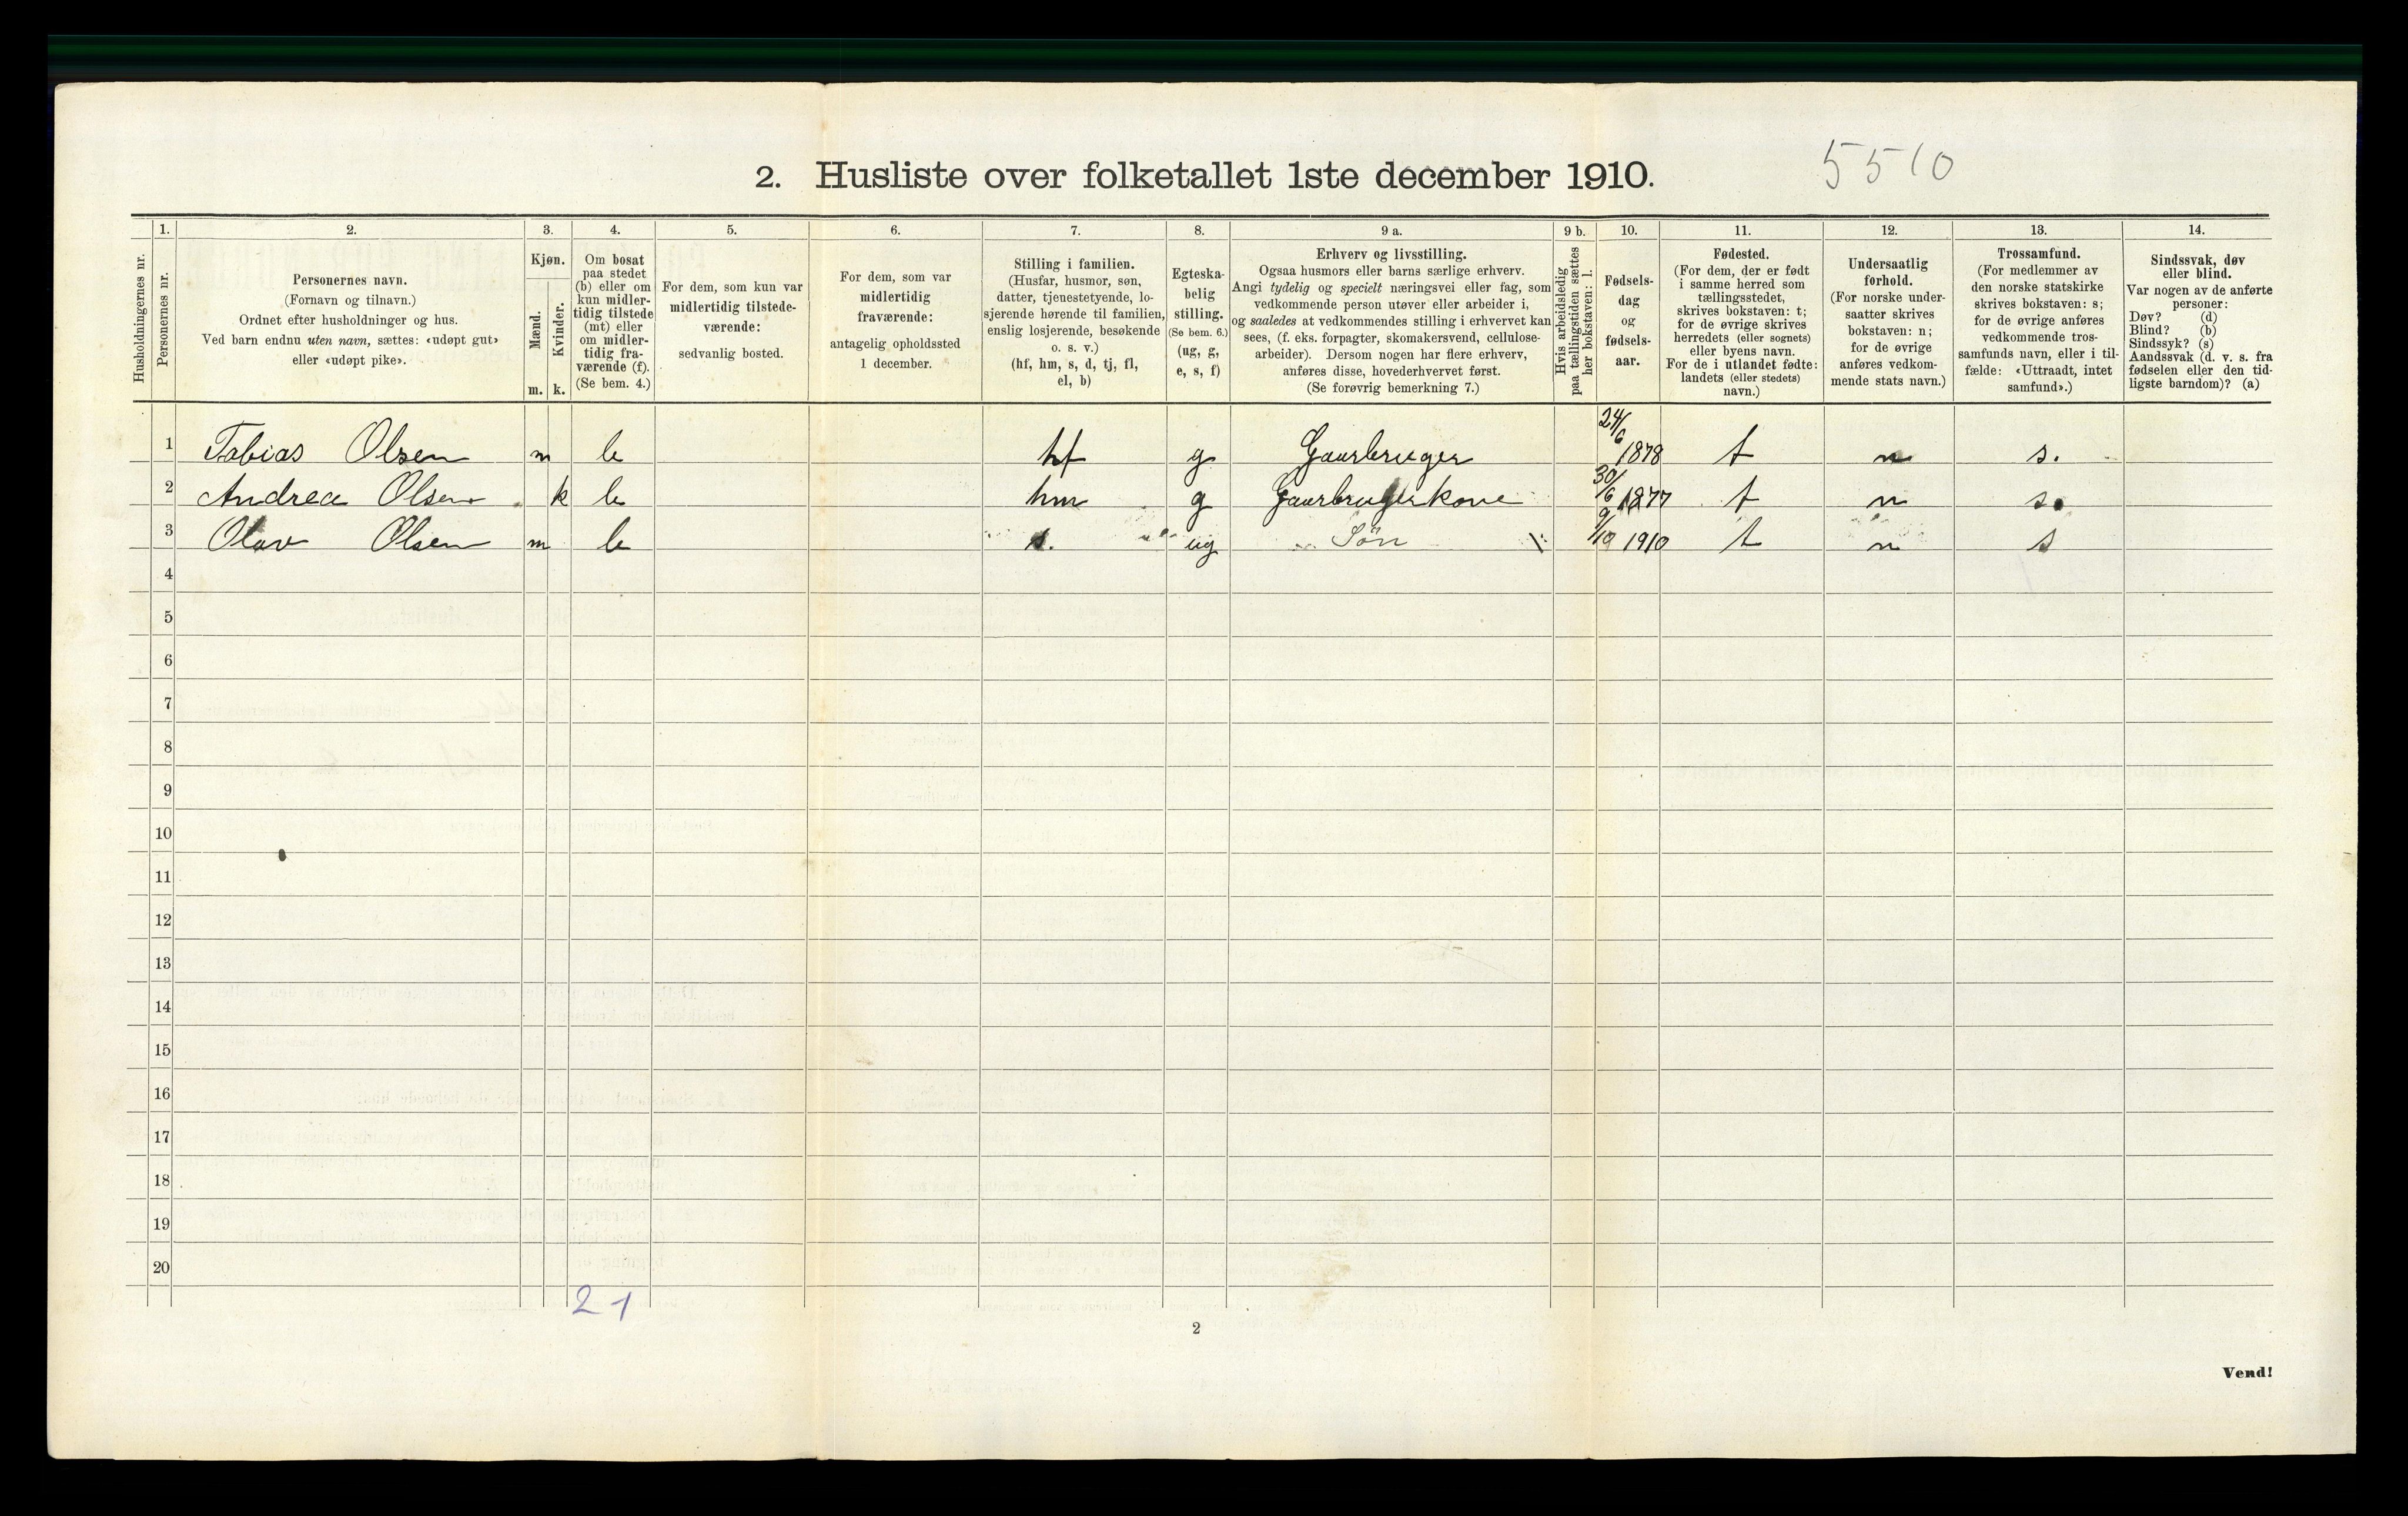 2. Husliste over folketallet 1ste december 1910.
5510
1. 2. 3. 4. 5. 6. 7. 8. 9 a. 9 b. 10. 11. 12. 13. 14.
Husholdningernes nr.
Personernes nr.
Personernes navn.
(Fornavn og tilnavn.)
Ordnet efter husholdninger og hus.
Ved barn endnu uten navn, sættes: «udøpt gut»
eller «udøpt pike».
Kjøn.
Mænd.
Kvinder.
m. k.
Om bosat
paa stedet
(b) eller om
kun midler-
tidig tilstede
(mt) eller
om midler-
tidig fra-
værende (f).
(Se bem. 4.)
For dem, som kun var
midlertidig tilstede-
værende:
sedvanlig bosted.
For dem, som var
midlertidig
fraværende:
antagelig opholdssted
1 december.
Stilling i familien.
(Husfar, husmor, søn,
datter, tjenestetyende, lo-
sjerende hørende til familien,
enslig losjerende, besøkende
o. s. v.)
(hf, hm, s, d, tj, fl,
el, b)
Egteska-
belig
stilling.
(Se bem. 6.)
(ug, g,
e, s, f)
Erhverv og livsstilling.
Ogsaa husmors eller barns særlige erhverv.
Angi tydelig og specielt næringsvei eller fag, som
vedkommende person utøver eller arbeider i,
og saaledes at vedkommendes stilling i erhvervet kan
sees, (f. eks. forpagter, skomakersvend, cellulose-
arbeider). Dersom nogen har flere erhverv,
anføres disse, hovederhvervet først.
(Se forøvrig bemerkning 7.)
Hvis arbeidsledig
paa tællingstiden sættes
her bokstaven: l.
Fødsels-
dag
og
fødsels-
aar.
Fødested.
(For dem, der er født
i samme herred som
tællingsstedet,
skrives bokstaven: t;
for de øvrige skrives
herredets (eller sognets)
eller byens navn.
For de i utlandet fødte:
landets (eller stedets)
navn.)
Undersaatlig
forhold.
(For norske under-
saatter skrives
bokstaven: n;
for de øvrige
anføres vedkom-
mende stats navn.)
Trossamfund.
(For medlemmer av
den norske statskirke
skrives bokstaven: s;
for de øvrige anføres
vedkommende tros-
samfunds navn, eller i til-
fælde: «Uttraadt, intet
samfund».)
Sindssvak, døv
eller blind.
Var nogen av de anførte
personer:
Døv? (d)
Blind? (b)
Sindssyk? (s)
Aandssvak (d. v. s. fra
fødselen eller den tid-
ligste barndom)? (a)
1 Tobias Olsen m b hf g Gaarbruger 24/6 1878 t n s.
2 Andrea Olsen k b hm g Gaarbrugerkone 30/6 1877 t n s.
3 Olav Olsen m b s. ug Søn 9/10 1910 t n s
4
5
6
7
8
9
10
11
12
13
14
15
16
17
18
19
20
2 1
2
Vend!